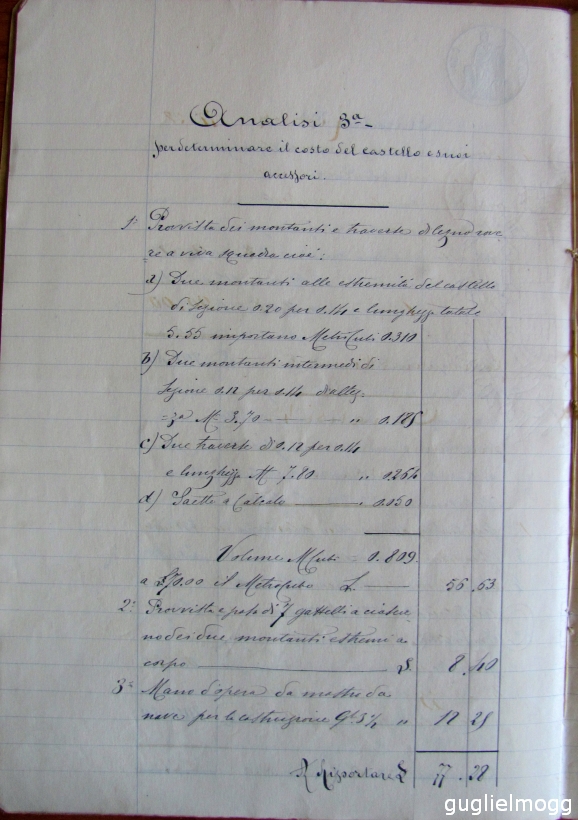 Analisi 3ª
per determinare il costo del castello e suoi
accessori.
1º Provvista dei montanti e traverse di legno rove-
re a viva squadra cioè:
a) Due montanti alle estremità del castello
di sezione 0.20 per 0.14 e lunghezza totale
5.55 importano Metri Cubi 0.310
b) Due montanti intermedi di
sezione 0.12 per 0.14 di altez-
za M. 3.70 " 0.185
c) Due traverse di 0.12 per 0.14
e lunghezza M 7.80 " 0.264
d) Saette a Calcolo 0.050
Volume M Cubi 0.809
a £70.00 il Metro Cubo £. 56.63
2º Provvista e posa di 7 gattelli a ciascu-
no dei due montanti estremi a
corpo £. 8.40
3º Mano d'opera da mastro da
per la costruzione 3½ " 12 25
A Riportare £ 77.28
guglielmogg